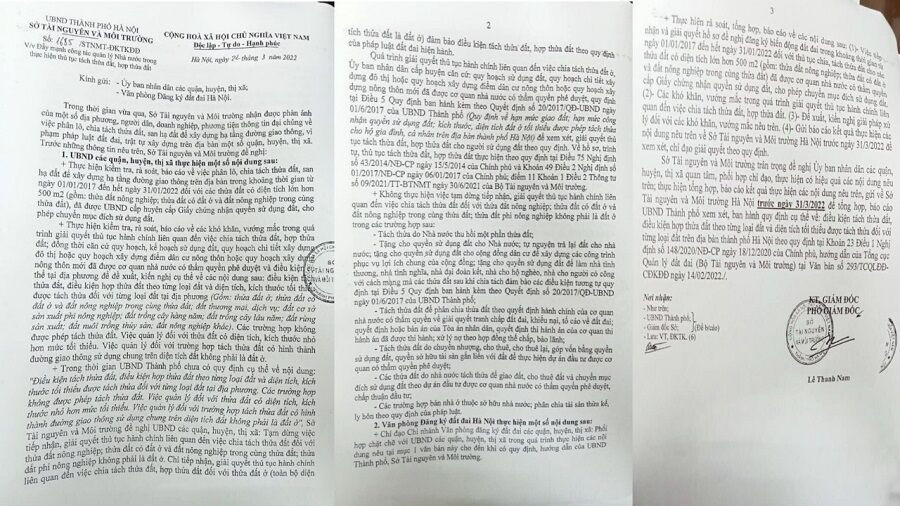 UBND THÀNH PHỐ HÀ NỘI
SỞ TÀI NGUYÊN VÀ MÔI TRƯỜNG
Số: 1685/STNMT-ĐKTKĐĐ
V/v Đẩy mạnh công tác quản lý Nhà nước trong
thực hiện thủ tục tách thửa đất, hợp thửa đất
CỘNG HOÀ XÃ HỘI CHỦ NGHĨA VIỆT NAM
Độc lập - Tự do - Hạnh phúc
Hà Nội, ngày 24 tháng 3 năm 2022
Kính gửi: - Ủy ban nhân dân các quận, huyện, thị xã;
- Văn phòng Đăng ký đất đai Hà Nội.
Trong thời gian vừa qua, Sở Tài nguyên và Môi trường nhận được phản ánh
của một số địa phương, người dân, doanh nghiệp, phương tiện thông tin đại chúng về
việc phân lô, chia tách thửa đất, san hạ đất để xây dựng hạ tầng đường giao thông, vi
phạm pháp luật đất đai, trật tự xây dựng trên địa bàn một số quận, huyện, thị xã.
Trước những thông tin nêu trên, Sở Tài nguyên và Môi trường đề nghị:
1. UBND các quận, huyện, thị xã thực hiện một số nội dung sau:
+ Thực hiện kiểm tra, rà soát, báo cáo về việc phân lô, chia tách thửa đất, san
hạ đất để xây dựng hạ tầng đường giao thông trên địa bàn trong khoảng thời gian từ
ngày 01/01/2017 đến hết ngày 31/01/2022 đối với các thửa đất có diện tích lớn hơn
500 m2 (gồm: thửa đất nông nghiệp; thửa đất có đất ở và đất nông nghiệp trong cùng
thửa đất), đã được UBND cấp huyện cấp Giấy chứng nhận quyền sử dụng đất, cho
phép chuyển mục đích sử dụng đất.
+ Thực hiện kiểm tra, rà soát, báo cáo về các khó khăn, vướng mắc trong quá
trình giải quyết thủ tục hành chính liên quan đến việc chia tách thửa đất, hợp thửa
đất; đồng thời căn cứ quy hoạch, kế hoạch sử dụng đất, quy hoạch chi tiết xây dựng
đô thị hoặc quy hoạch xây dựng điểm dân cư nông thôn hoặc quy hoạch xây dựng
nông thôn mới đã được cơ quan nhà nước có thẩm quyền phê duyệt và điều kiện cụ
thể tại địa phương để đề xuất, kiến nghị cụ thể về các nội dung sau: điều kiện tách
thửa đất, điều kiện hợp thửa đất theo từng loại đất và diện tích, kích thước tối thiểu
được tách thửa đất đối với từng loại đất tại địa phương (Gồm: thửa đất ở; thửa đất có
đất ở và đất nông nghiệp trong cùng thửa đất; đất thương mại, dịch vụ; đất cơ sở
sản xuất phi nông nghiệp; đất trồng cây hàng năm; đất trồng cây lâu năm; đất rừng
sản xuất; đất nuôi trồng thủy sản; đất nông nghiệp khác). Các trường hợp không
được phép tách thửa đất. Việc quản lý đối với thửa đất có diện tích, kích thước nhỏ
hơn mức tối thiểu. Việc quản lý đối với trường hợp tách thửa đất có hình thành
đường giao thông sử dụng chung trên diện tích đất không phải là đất ở.
+ Trong thời gian UBND Thành phố chưa có quy định cụ thể về nội dung:
"Điều kiện tách thửa đất, điều kiện hợp thửa đất theo từng loại đất và diện tích, kích
thước tối thiểu được tách thửa đất đối với từng loại đất tại địa phương. Các trường hợp
không được phép tách thửa đất. Việc quản lý đối với thửa đất có diện tích, kích
thước nhỏ hơn mức tối thiểu. Việc quản lý đối với trường hợp tách thửa đất có hình
thành đường giao thông sử dụng chung trên diện tích đất không phải là đất ở", Sở
Tài nguyên và Môi trường đề nghị UBND các quận, huyện, thị xã: Tạm dừng việc
tiếp nhận, giải quyết thủ tục hành chính liên quan đến việc chia tách thửa đất đối với
thửa đất nông nghiệp; thửa đất có đất ở và đất nông nghiệp trong cùng thửa đất; thửa
đất phi nông nghiệp không phải là đất ở. Chỉ tiếp nhận, giải quyết thủ tục hành chính
liên quan đến việc chia tách thửa đất, hợp thửa đất đối với thửa đất ở (toàn bộ diện
2
tích thửa đất là đất ở) đảm bảo điều kiện tách thửa đất, hợp thửa đất theo quy định
của pháp luật đất đai hiện hành.
Quá trình giải quyết thủ tục hành chính liên quan đến việc chia tách thửa đất ở,
Ủy ban nhân dân cấp huyện căn cứ: quy hoạch sử dụng đất, quy hoạch chi tiết xây
dựng đô thị hoặc quy hoạch xây dựng điểm dân cư nông thôn hoặc quy hoạch xây
dựng nông thôn mới đã được cơ quan nhà nước có thẩm quyền phê duyệt, quy định
tại Điều 5 Quy định ban hành kèm theo Quyết định số 20/2017/QĐ-UBND ngày
01/6/2017 của UBND Thành phố (Quy định về hạn mức giao đất; hạn mức công
nhận quyền sử dụng đất; kích thước, diện tích đất ở tối thiểu được phép tách thửa
cho hộ gia đình, cá nhân trên địa bàn thành phố Hà Nội) để xem xét, giải quyết thủ
tục chia tách thửa đất, hợp thửa đất cho người sử dụng đất theo quy định. Về hồ sơ, trình
tự, thủ tục tách thửa đất, hợp thửa đất thực hiện theo quy định tại Điều 75 Nghị định
số 43/2014/NĐ-CP ngày 15/5/2014 của Chính phủ và Khoản 49 Điều 2 Nghị định số
01/2017/NĐ-CP ngày 06/01/2017 của Chính phủ; điểm 11 Khoản 1 Điều 2 Thông tư
số 09/2021/TT-BTNMT ngày 30/6/2021 của Bộ Tài nguyên và Môi trường.
+ Không thực hiện việc tạm dừng tiếp nhận, giải quyết thủ tục hành chính liên
quan đến việc chia tách thửa đất đối với thửa đất nông nghiệp; thửa đất có đất ở và
đất nông nghiệp trong cùng thửa đất; thửa đất phi nông nghiệp không phải là đất ở
trong các trường hợp sau:
- Tách thửa đất do Nhà nước thu hồi một phần thửa đất;
- Tặng cho quyền sử dụng đất cho Nhà nước; tự nguyện trả lại đất cho nhà
nước; tặng cho quyền sử dụng đất cho cộng đồng dân cư để xây dựng các công trình
phục vụ lợi ích chung của cộng đồng; tặng cho quyền sử dụng đất để làm nhà tình
thương, nhà tình nghĩa, nhà đại đoàn kết, nhà cho hộ nghèo, nhà cho người có công
với cách mạng mà các thửa đất sau khi chia tách đảm bảo các điều kiện tương tự quy
định tại Điều 5 Quy định ban hành kèm theo Quyết định số 20/2017/QĐ-UBND
ngày 01/6/2017 của UBND Thành phố;
- Tách thửa đất để phân chia thửa đất theo quyết định hành chính của cơ quan nhà
nước có thẩm quyền về giải quyết tranh chấp đất đai, khiếu nại, tố cáo về đất đai;
quyết định hoặc bản án của Tòa án nhân dân, quyết định thi hành án của cơ quan thi
hành án đã được thi hành; xử lý nợ theo hợp đồng thế chấp, bảo lãnh;
- Tách thửa đất do chuyển nhượng, cho thuê, cho thuê lại, góp vốn bằng quyền
sử dụng đất, quyền sở hữu tài sản gắn liền với đất để thực hiện dự án đầu tư được cơ
quan có thẩm quyền phê duyệt;
- Các thửa đất do nhà nước tách thửa để giao đất, cho thuê đất và chuyển mục
đích sử dụng đất theo dự án đầu tư được cơ quan nhà nước có thẩm quyền phê duyệt,
chấp thuận đầu tư;
- Các trường hợp bán nhà ở thuộc sở hữu nhà nước; phân chia tài sản thừa kế,
ly hôn theo quy định của pháp luật.
2. Văn phòng Đăng ký đất đai Hà Nội thực hiện một số nội dung sau:
+ Chỉ đạo Chi nhánh Văn phòng đăng ký đất đai các quận, huyện, thị xã: Phối
hợp chặt chẽ với UBND các quận, huyện, thị xã trong quá trình thực hiện các nội
dung nêu tại mục 1 văn bản này cho đến khi có quy định, hướng dẫn của UBND
Thành phố, Sở Tài nguyên và Môi trường.
3
+ Thực hiện rà soát, tổng hợp, báo cáo về các nội dung sau: (1)- Việc tiếp
nhận và giải quyết hồ sơ đề nghị đăng ký biến động đất đai trong khoảng thời gian từ
01/01/2017 đến hết ngày 31/01/2022 đối với thủ tục chia, tách thửa đất cho các
thửa đất có diện tích lớn hơn 500 m2 (gồm: thửa đất nông nghiệp; thửa đất có đất ở
và đất nông nghiệp trong cùng thửa đất) đã được cơ quan nhà nước có thẩm quyền
cấp Giấy chứng nhận quyền sử dụng đất, cho phép chuyển mục đích sử dụng đất.
(2)- Các khó khăn, vướng mắc trong quá trình giải quyết thủ tục hành chính liên
quan đến việc chia tách thửa đất, hợp thửa đất. (3)- Đề xuất, kiến nghị giải pháp xử
lý đối với các khó khăn, vướng mắc nêu trên. (4)- Gửi báo cáo kết quả thực hiện các
nội dung nêu trên về Sở Tài nguyên và Môi trường Hà Nội trước ngày 31/3/2022 để
xem xét, chỉ đạo giải quyết theo quy định.
Sở Tài nguyên và Môi trường trân trọng đề nghị Ủy ban nhân dân các quận,
huyện, thị xã quan tâm, phối hợp chỉ đạo, thực hiện có hiệu quả các nội dung nêu
trên; thực hiện tổng hợp, báo cáo kết quả thực hiện các nội dung nêu trên, gửi về Sở
Tài nguyên và Môi trường Hà Nội trước ngày 31/3/2022 để tổng hợp, báo cáo
UBND Thành phố xem xét, ban hành quy định cụ thể về: điều kiện tách thửa đất,
điều kiện hợp thửa đất theo từng loại đất và diện tích tối thiểu được tách thửa đất đối với
từng loại đất trên địa bàn thành phố Hà Nội theo quy định tại Khoản 23 Điều 1 Nghị
định số 148/2020/NĐ-CP ngày 18/12/2020 của Chính phủ, hướng dẫn của Tổng cục
Quản lý đất đai (Bộ Tài nguyên và Môi trường) tại Văn bản số 293/TCQLĐĐ-
CĐKĐĐ ngày 14/02/2022./.
Nơi nhận:
- Như trên;
- UBND Thành phố;
- Giám đốc Sở;
(Để b/cáo)
- Lưu: VT, ĐKTK. (6)
KT. GIÁM ĐỐC
PHÓ GIÁM ĐỐC
SỞ
TÀI NGUYÊN
VÀ MÔI TRƯỜNG
Lê Thanh Nam